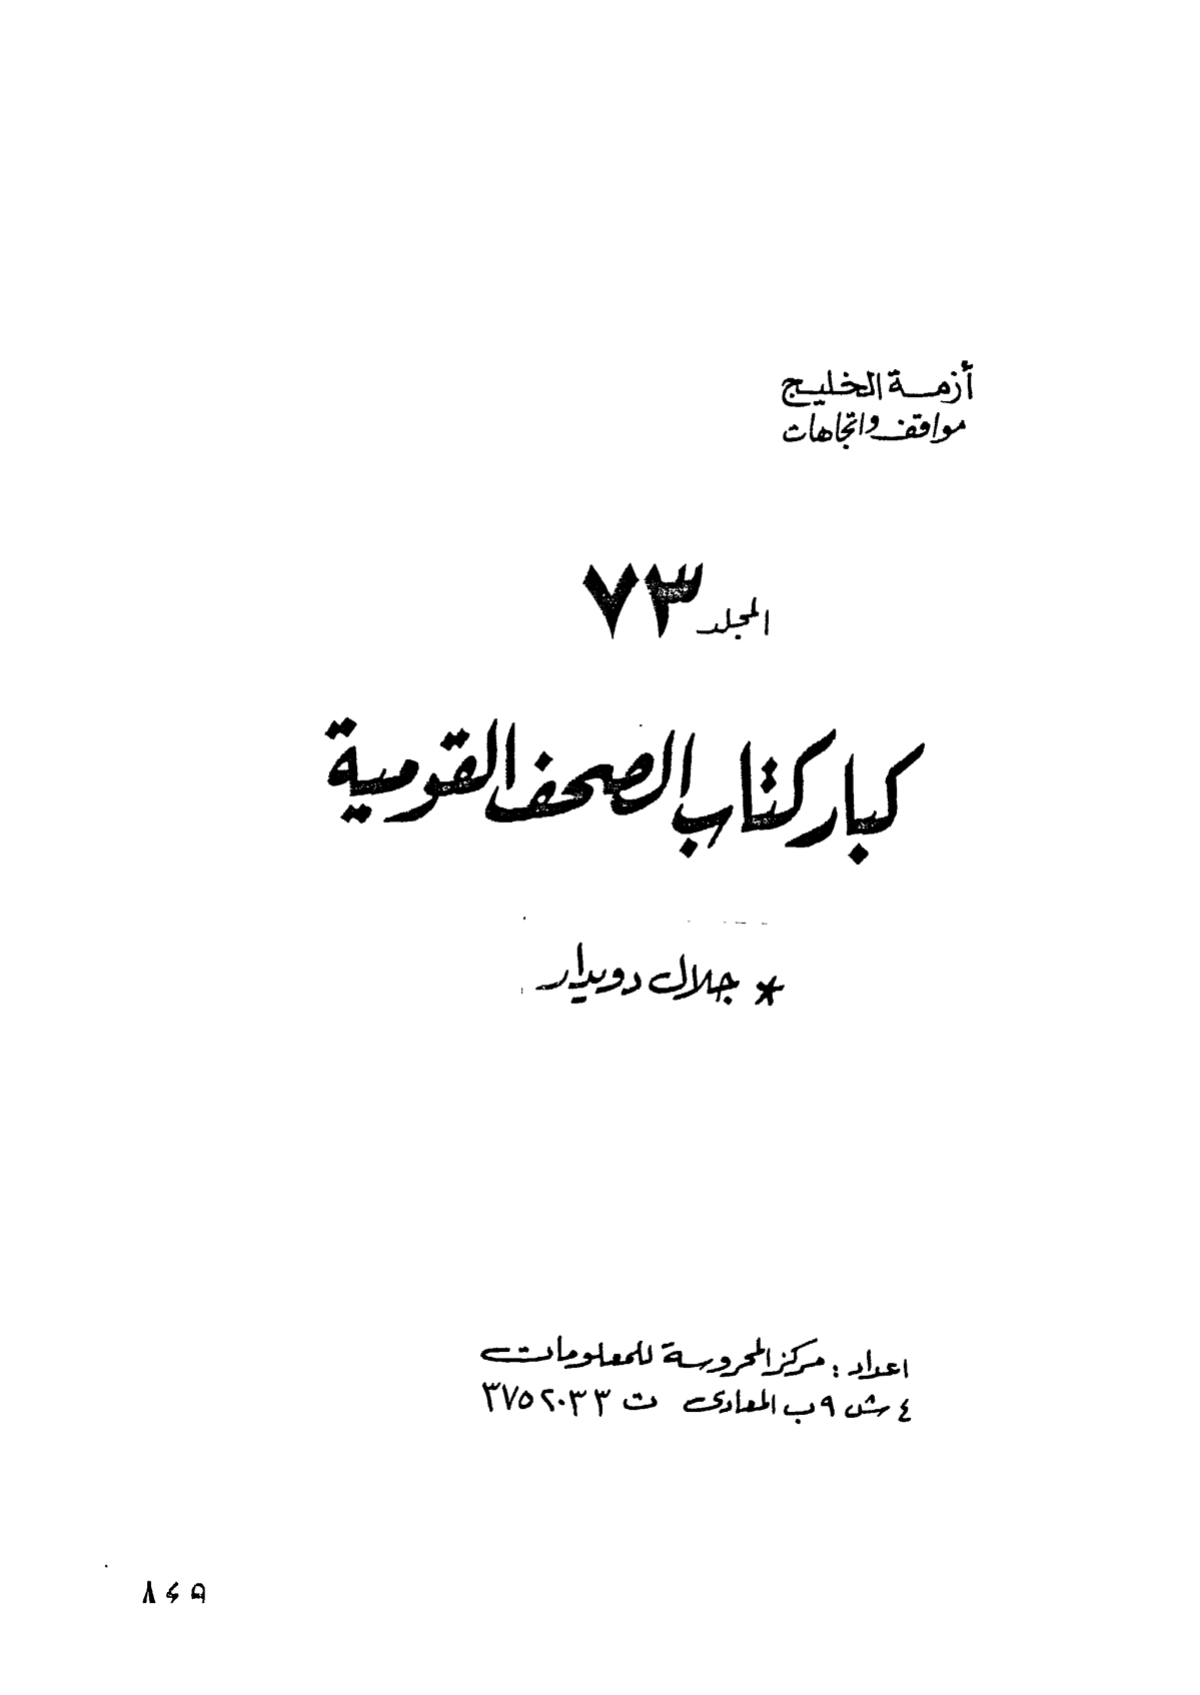 أزمة الخليج
مواقف واتجاهات
المجلد ٧٣
كبار كتاب الصحف القومية
* جلال دويدار
اعداد : مركز المحروسة للمعلومات
٤ ش ٩ ب المعادى ت ٣٧٥٢٠٣٣
٨٤٩